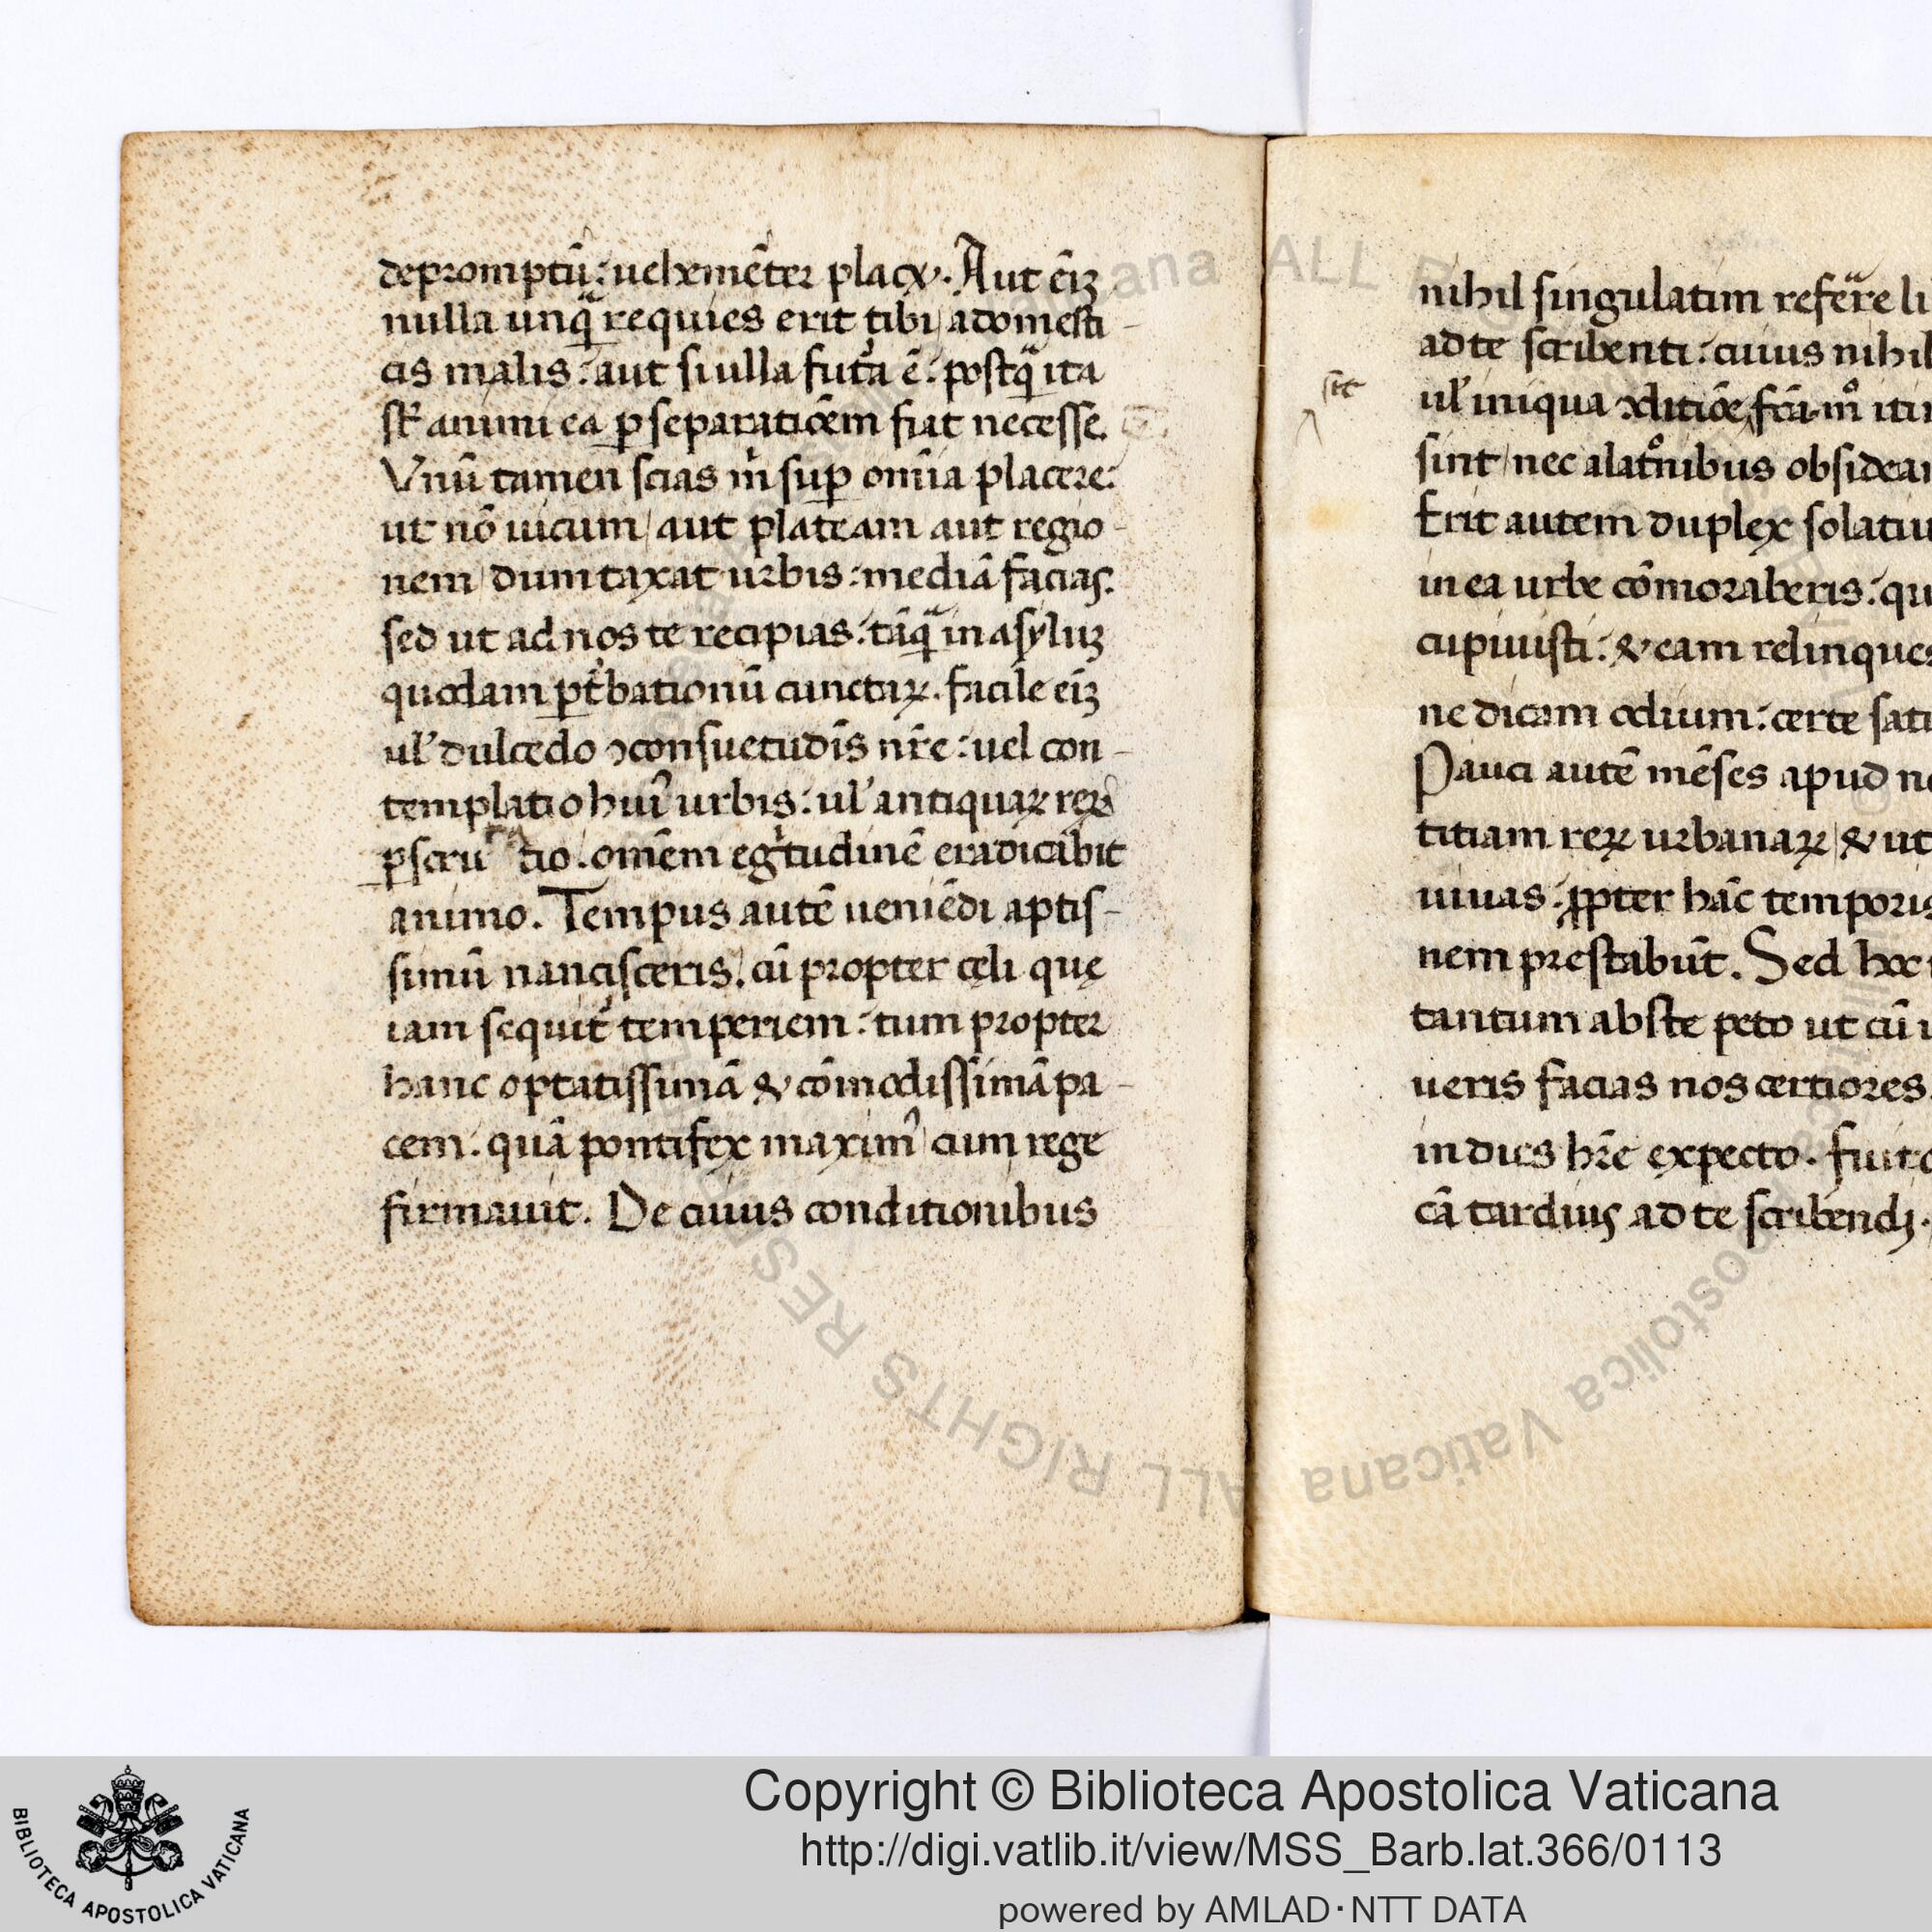 depromptū: uehemēter placꝫ. Aut eīꝫ
nulla unq̃ requies erit tibi adomesti-
cis malis: aut si ulla fut̃a ē: postq̃ ita
animi ea ꝑ separatiōem fiat necesse.
Vnū tamen scias m̍ suꝑ omīa placere:
ut nō uicum/ aut plateam aut regio-
nem/ dumtaxat urbis: mediā facias.
sed ut ad nos te recipias: tāq̃ in asyluꝫ
quodam ꝑt̍bationū cunctaꝝ. facile eīꝫ
ul' dulcedo ↄconsuetudīs nr̄e: uel con-
templatio hui᾽ urbis: ul' antiquaꝝ reꝝ
ꝑscru tio. omēm egr̍tudinē eradicabit
animo. Tempus autē ueniēdi aptis-
simū nancisceris. cū propter cęli quę
iam sequit̍ temperiem: tum propter
hanc optatissimā & cōmodissimā pa-
cem: quā pontifex maxim᾽ cum rege
firmauit. De cuius conditionibus
nihil singulatim refer̃e li
ad te scribenti: cuius nihil
sic
ul' iniqua ↄditiōe itin
sint/ nec obsidean
Erit autem duplex solatiu
in ea urbe cōmoraberis: qu
cupiuisti: & eam relinques
ne dicam odium: certe sati
Pauci autē mēses apud no
titiam reꝝ urbanaꝝ/ & ut
uiuas: ꝓpter hāc temporis
nem prestabūt. Sed hoc
tantum abs te peto ut cū
ueris facias nos certiores.
in dies hr̄e expecto. fuit
cā tardius ad te scribendi.
BIBLIOTECA APOSTOLICA VATICANA
Copyright © Biblioteca Apostolica Vaticana
http://digi.vatlib.it/view/MSS_Barb.lat.366/0113
powered by AMLAD·NTT DATA